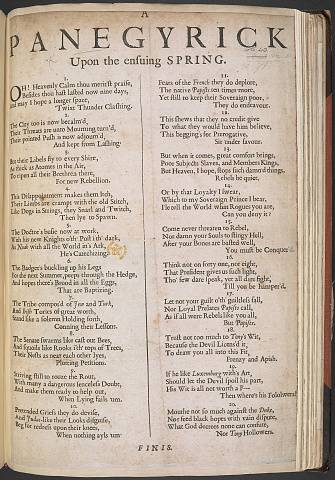 A
PANEGYRICK
Upon the ensuing SPRING.
1.
OH! Heavenly Calm thou meritst praise,
Besides thou hast lasted now nine days,
And may I hope a longer space,
'Twixt Thunder Clashing.
2.
The City too is now becalm'd,
Their Threats are unto Mourning turn'd,
Their pointed Push is now adjourn'd,
And kept from Lashing.
3.
But their Libels fly to every Shire,
As thick as Atomes in the Air,
To ripen all their Brethren there,
For new Rebellion.
4.
This Disappointment makes them Itch,
Their Limbs are crampt with the old Stitch,
Like Dogs in Strings, they Snarl and Twitch,
Then lye to Spawn.
5.
The Doctor's busie now at work,
With his new Knights o'th' Post i'th' dark,
As Noah with all the World in's Ark,
He's Catechizing.
6.
The Badgers buckling up his Eggs
for the next Summer, peeps through the Hedge,
And hopes there's Brood in all the Eggs,
That are Baptizing.
7.
The Tribe compos'd of Jew and Turk,
And Tories of great worth,
Stand like a Solemn Bidding forth,
Conning their Lessons.
8.
The Senate swarms like cast out Bees,
And squeals like Rooks i'th' tops of Trees,
Their Nests as near each other Iyes,
Plotting Petitions.
9.
Striving still to rouze the Rout,
With many a dangerous senceless Doubt,
And make them ready to help out,
When Lying fails 'um.
10.
Pretended Griefs they do devise,
And Judas-like their Looks disguise,
Beg for redress upon their knees,
When nothing ayls 'um
11.
Fears of the French they do deplore,
The native Papists ten times more,
Yet still to keep their Soveraign poor,
They do endeavour.
12.
This shews that they no credit give
To what they would have him believe,
This begging's for Prerogative,
Sir under favour.
13.
But when it comes, great comfort brings,
Poor Subjects Slaves, and Members Kings,
But Heaven, I hope, stops such damn'd things,
Rebels be quiet.
14.
Or by that Loyalty I swear,
Which to my Sovereign Prince I bear,
He tell the World what Rogues you are,
Can you deny it?
15.
Come never threaten to Rebel,
Nor damn your Souls to stinging Hell,
After your Bones are basted well,
You must be Conquer'd.
16.
Think not on forty one, not eight,
That President gives us such light,
Tho' few dare speak, yet all dare fight,
Till you be Bumper'd.
17.
Let not your guilt o'th' guildless fall,
Nor Loyal Prelates Papists call,
As if all were Rebels like you all,
But Papists.
18.
Trust not too much to Tony's Wit,
Because the Devil Licens'd it,
To draw you all into this Fit,
Frenzy and Apish.
19.
If he like Luxemburg with's Art,
Should let the Devil spoil his part,
His Wit is all not worth a F—
Then where's his Followers
20.
Mouthe not so much against the Duke,
Nor feed black hopes with vain dispute,
What God decrees none can confute,
Nor Tony Hollowers.
FINIS.